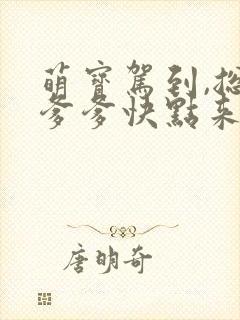 萌寶駕到,總
爹爹快點來
唐明奇